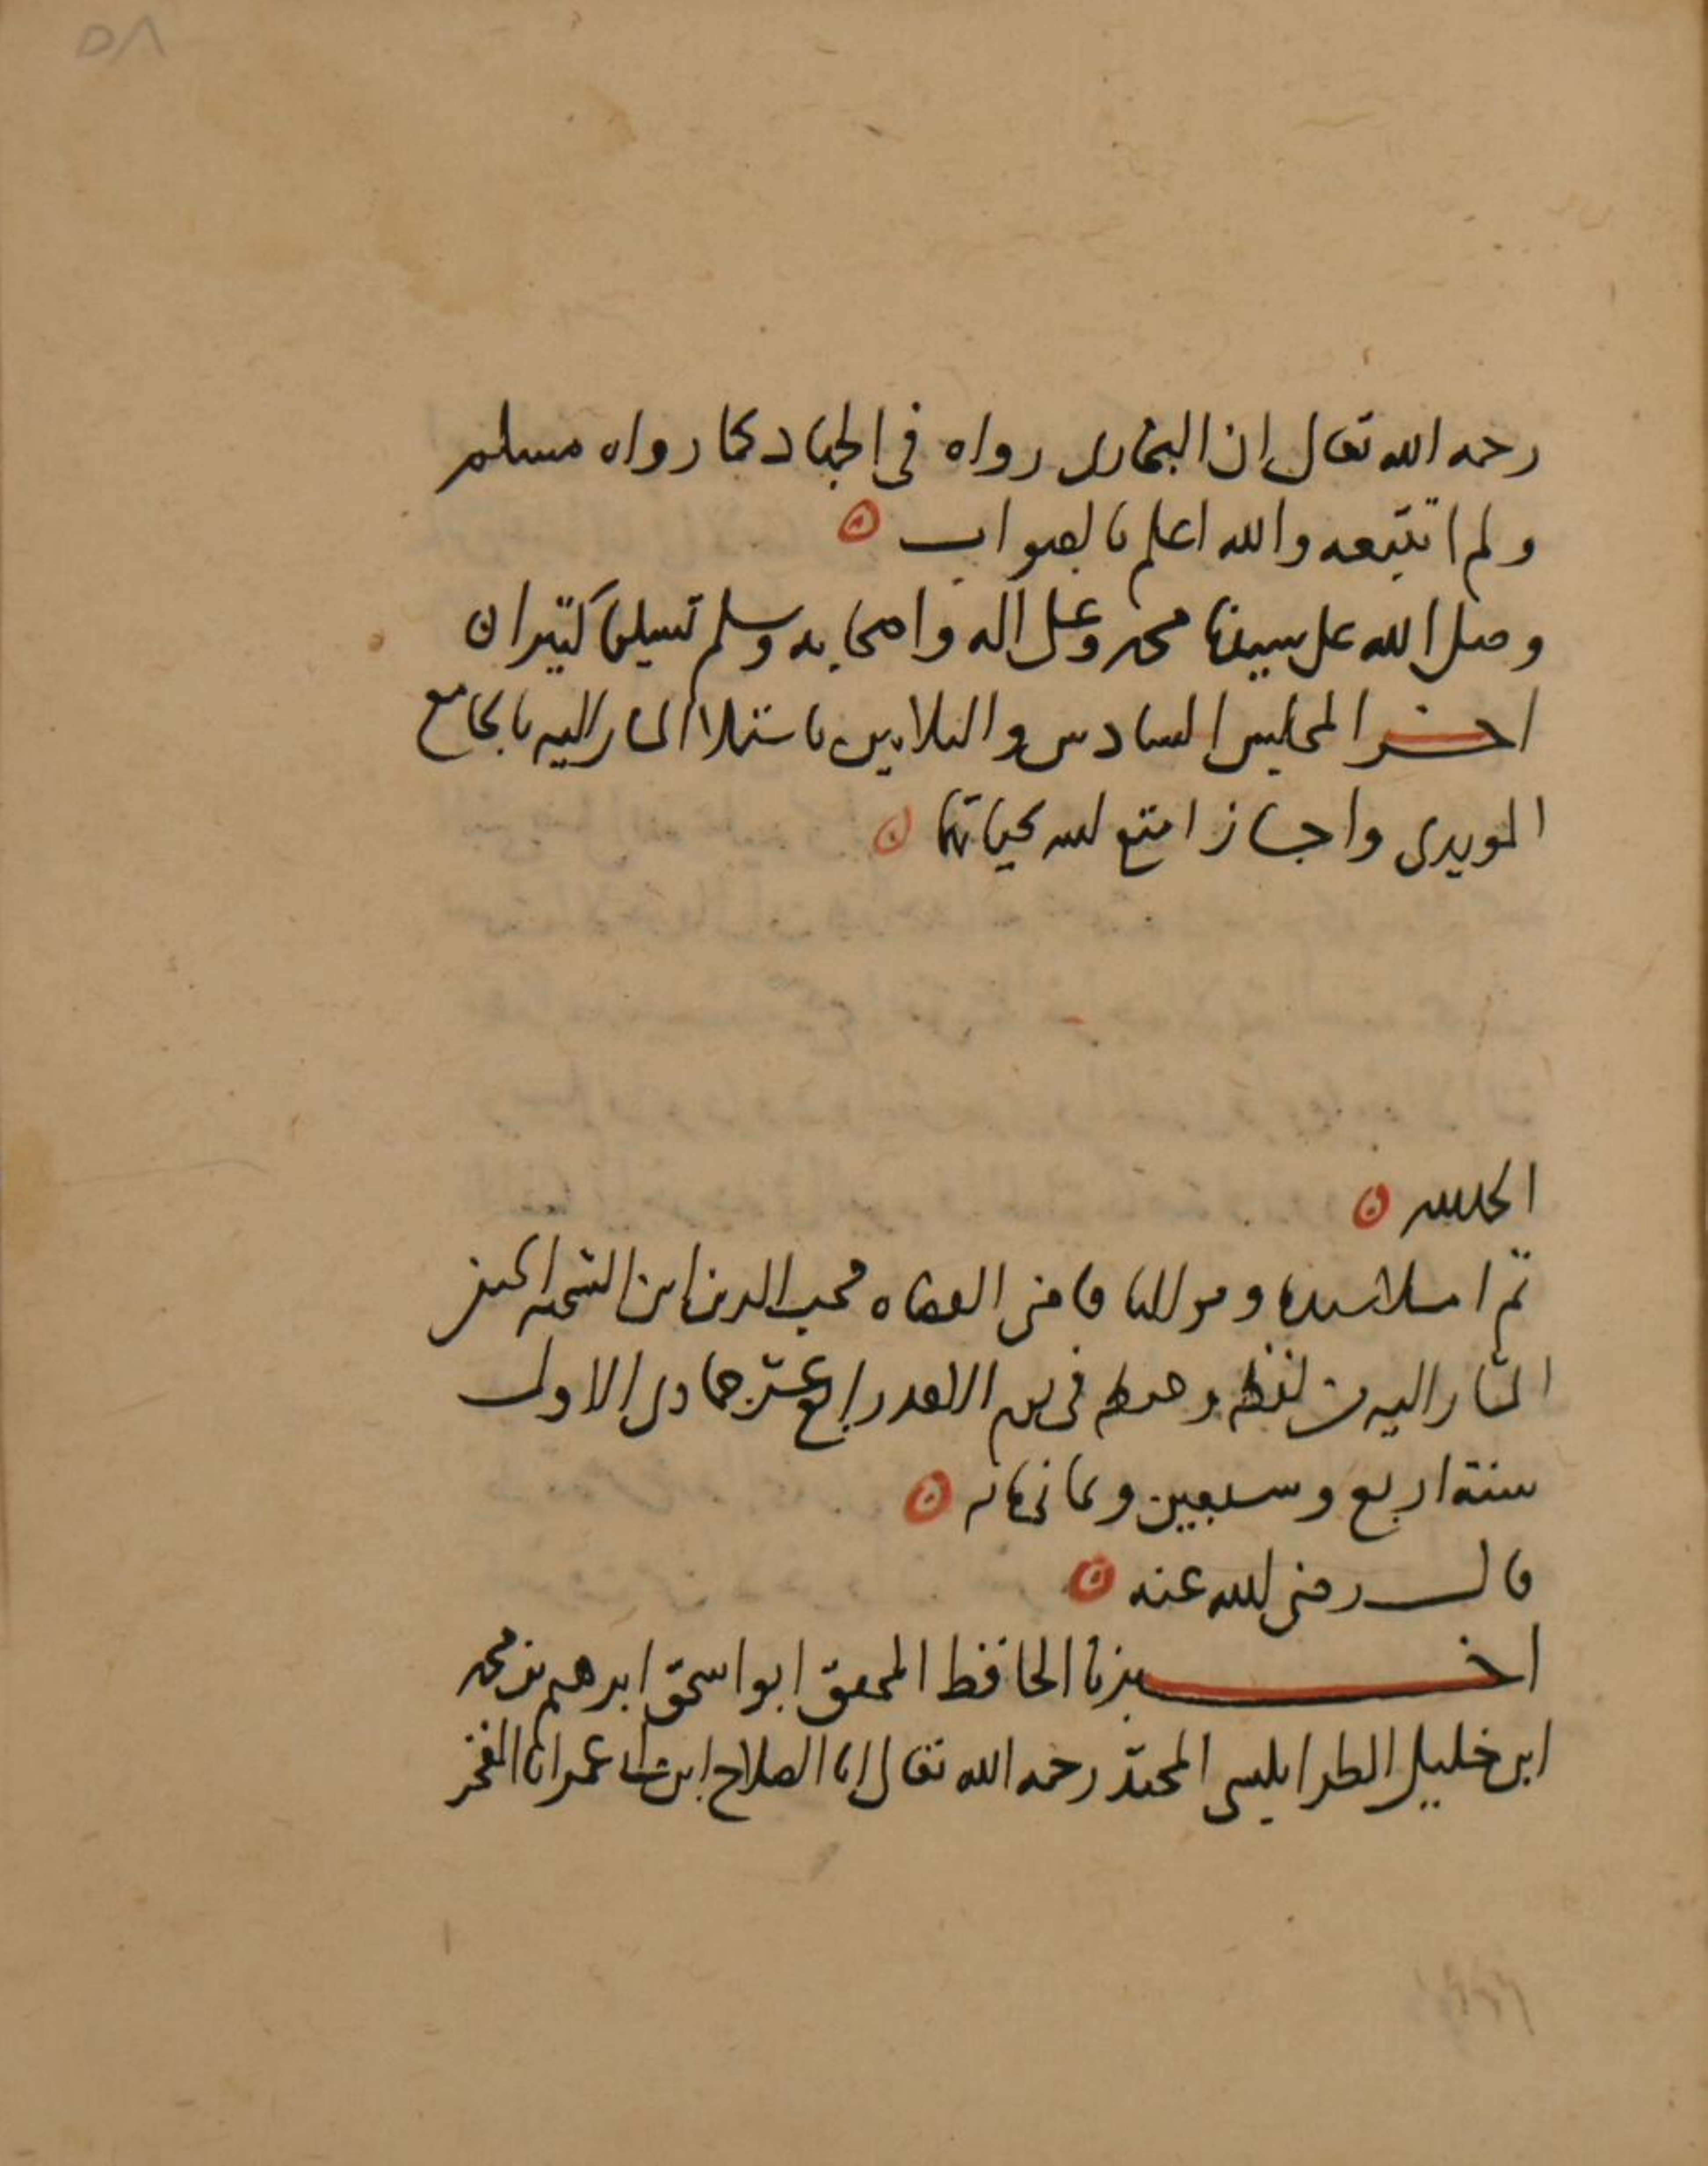 ٥٨
رحمه الله تعالى ان البخارى رواه فى الجهاد كما رواه مسلم
ولم اتتبعه والله اعلم بالصواب
وصلى الله على سيدنا محمد وعلى آله واصحابه وسلم تسليما كثيرا ن
اخر المجلس السادس والثلاثين باستملا المشار اليه بالجامع
المويدى واجاز امتع الله بحياتهما
الحمد لله
ثم املا سيدنا ومولانا قاضى القضاه محب الدين ابن الشحنه الحنفى
المشار اليه من لفظه وحفظه فى يوم الاحد رابع عشر جمادى الاولى
سنة اربع وسبعين وثمانمائه
قال رضى الله عنه
اخبرنا الحافظ المحقق ابو اسحق ابرهيم بن محمد
ابن خليل الطرابلسى المحتد رحمه الله تعالى انا الصلاح ابن عمر انا الفخر